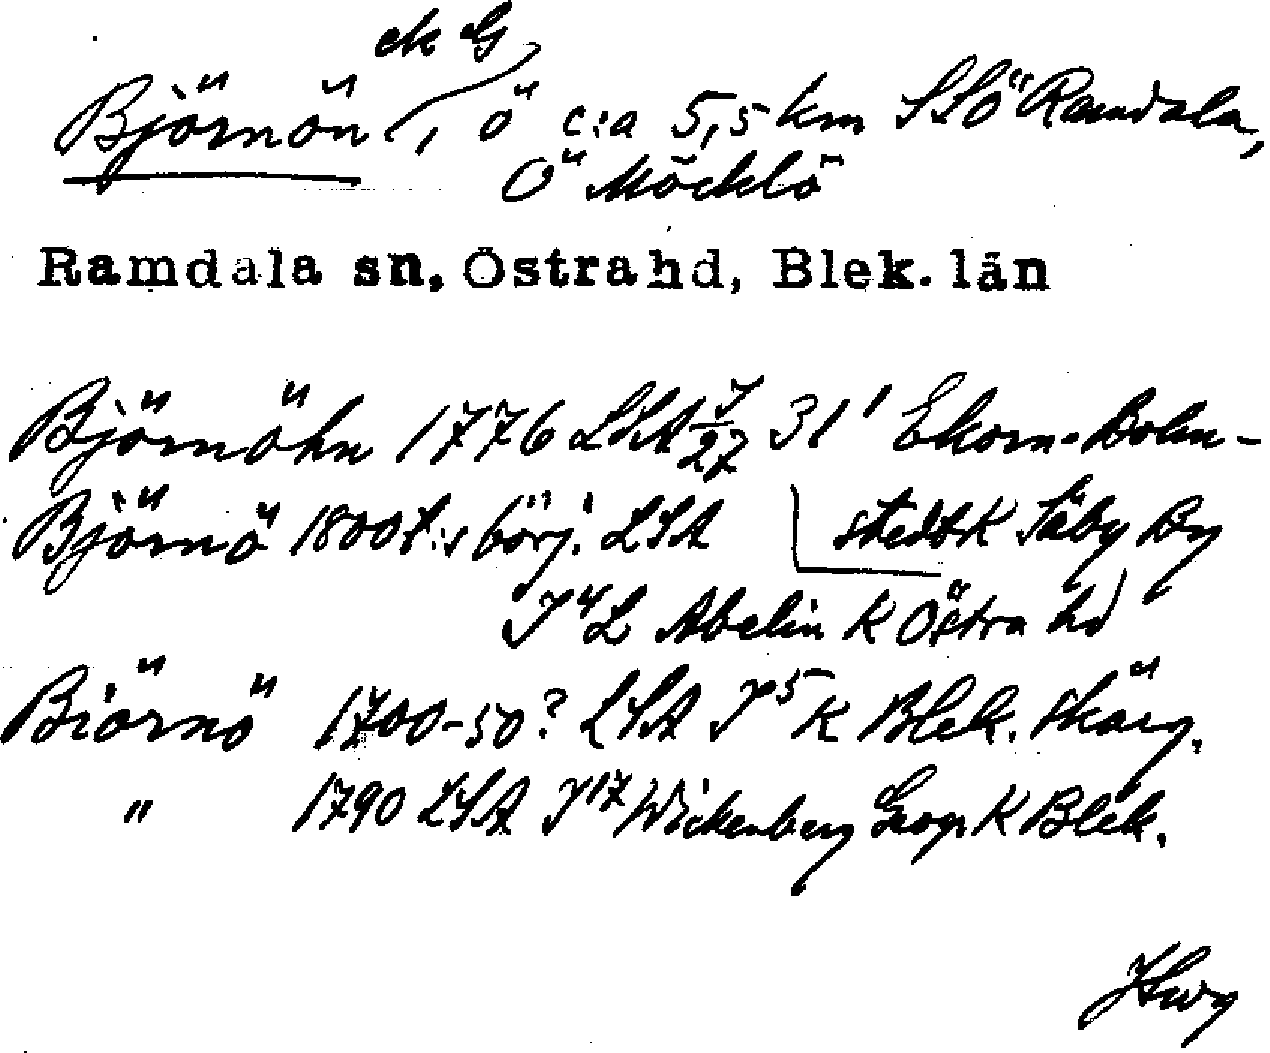 ek G
Björnön, ö c:a 5,5 km SSÖ Ramdala,
Ö Möcklö
Ramdala sn, Östra hd, Blek. län
Björnöhn 1776 LSA 7/27 31' Ekorn-Bolm-
Björnö 1800t.s börj. LSA stedt K Säby By
J⁴L Abelin K Östra hd
Biörnö 1700-50? LSA J⁵ K Blek. skärg.
" 1790 LSA J¹⁷ Wickenberg Geogr K Blek.